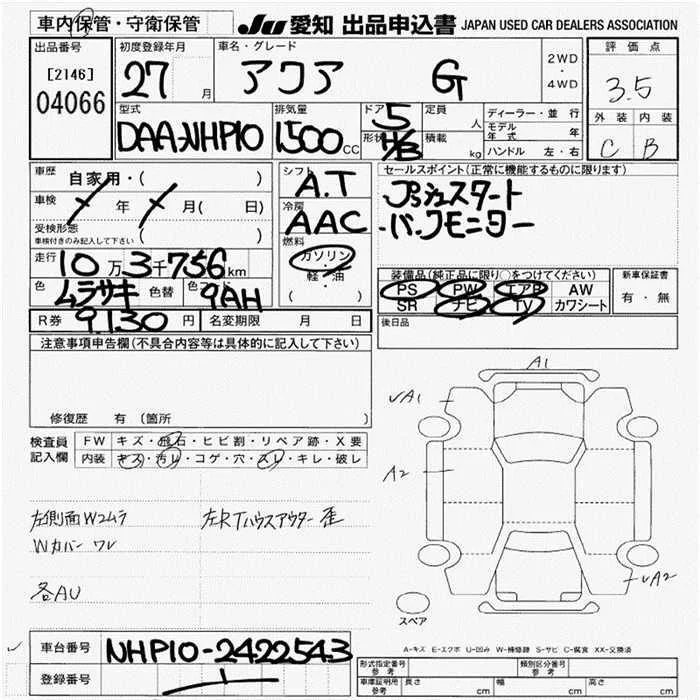 車内保管・守衛保管
JU 愛知 出品申込書 JAPAN USED CAR DEALERS ASSOCIATION
出品番号
[2146]
04066
初度登録年月
27 月
車名・グレード
アクア G
2WD
・
4WD
評価点
3.5
外装 内装
C B
型式
DAA-NHP10
排気量
1,500 CC
ドア 5
形状 H/B
定員 人
積載 kg
ディーラー・並行
モデル年式 年
ハンドル 左・右
車歴 自家用・( )
車検 年 月( 日)
受検形態
車検付きのみ記入して下さい ( )
走行 10万3千756km
色 ムラサキ 色替 色コード 9AH
R券 9,130 円 名変期限 月 日
シフト
A.T
冷房
AAC
燃料
ガソリン
・
軽・油
( )
セールスポイント(正常に機能するものに限ります)
プッシュスタート
・バックモニター
装備品(純正品に限り○をつけてください)
PS PW エアB AW
SR ナビ TV カワシート
新車保証書
有・無
後日品
注意事項申告欄(不具合内容等は具体的に記入して下さい)
修復歴 有(箇所 )
検査員記入欄
FW キズ・飛石・ヒビ割・リペア跡・X要
内装 キズ・汚レ・コゲ・穴・スレ・キレ・破レ
左側面Wコムラ
Wカバー ワレ
各AU
左RTハウスアウター歪
A1
A1
A2
A2
スペア
A-キズ E-エクボ U-凹み W-補修跡 S-サビ C-腐食 XX-交換済
車台番号 NHP10-2422543
登録番号
形式指定番号 参考
類別区分番号 参考
車庫証明用 参考 長さ cm 幅 cm 高さ cm